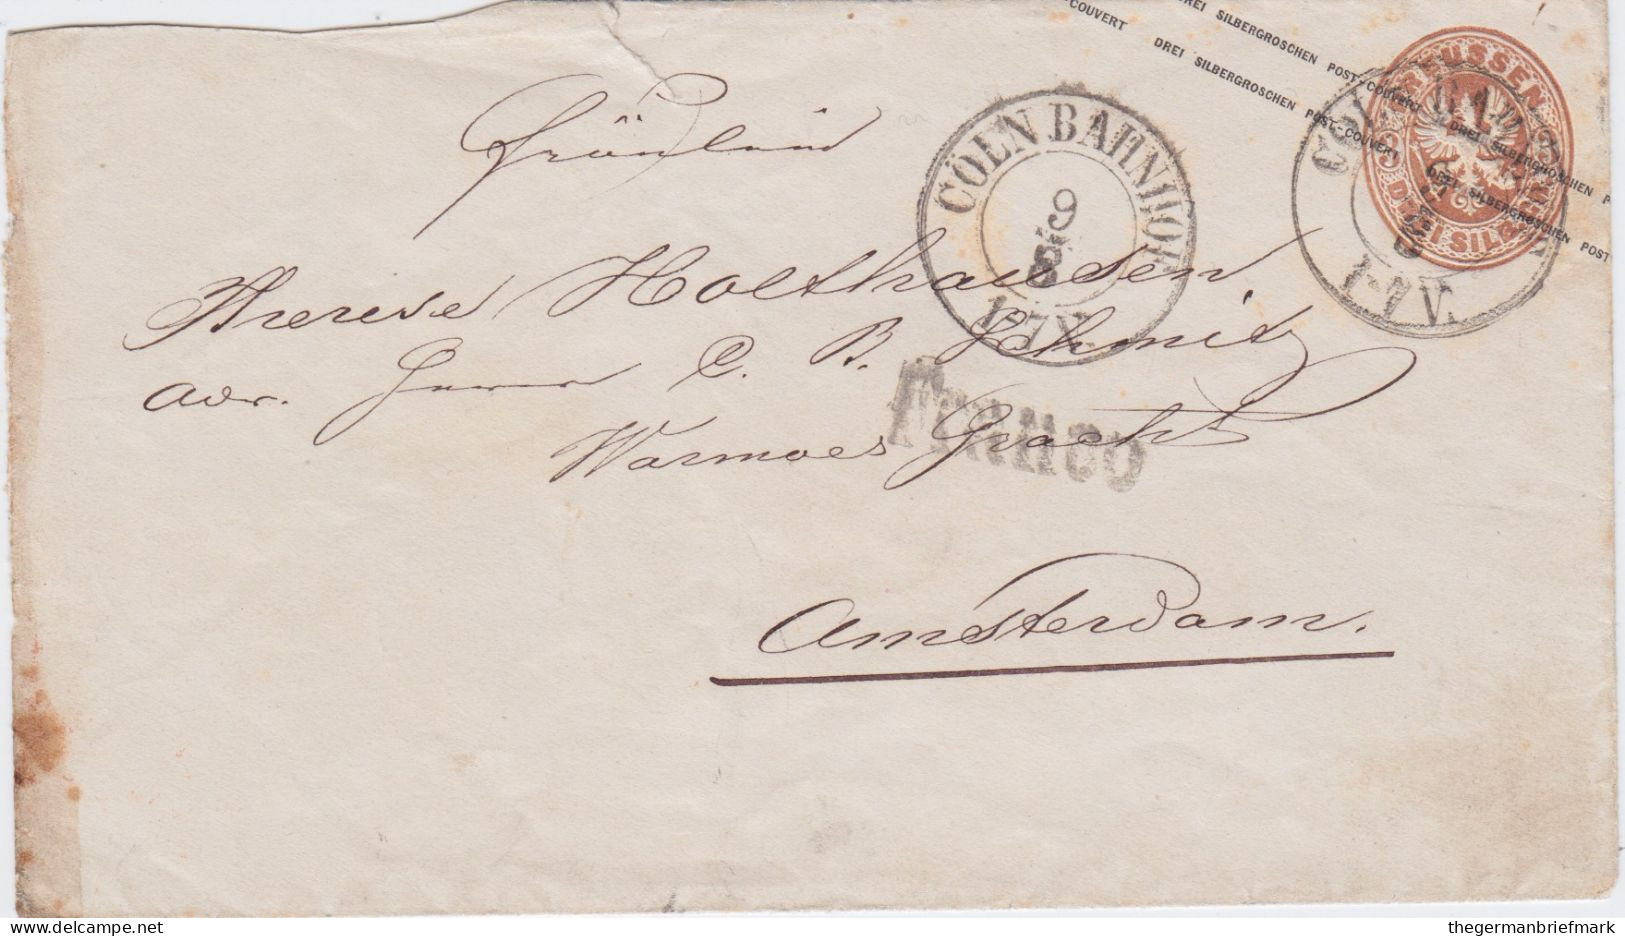 POST-COUVERT DREI SILBERGROSCHEN POST-COUVERT DREI SILBERGROSCHEN
COUVERT DREI SILBERGROSCHEN POST-COUVERT DREI SILBERGROSCHEN POST-
PREUSSEN DREI SILBERGR.
CÖLN BAHNHOF
9
5
1-7 V.
1-7 V.
Fräulein
Therese Holthausen,
adr. Herrn C. B. Schmitz
Warmoes Gracht
Franco
Amsterdam.
delcampe.net
thegermanbriefmark